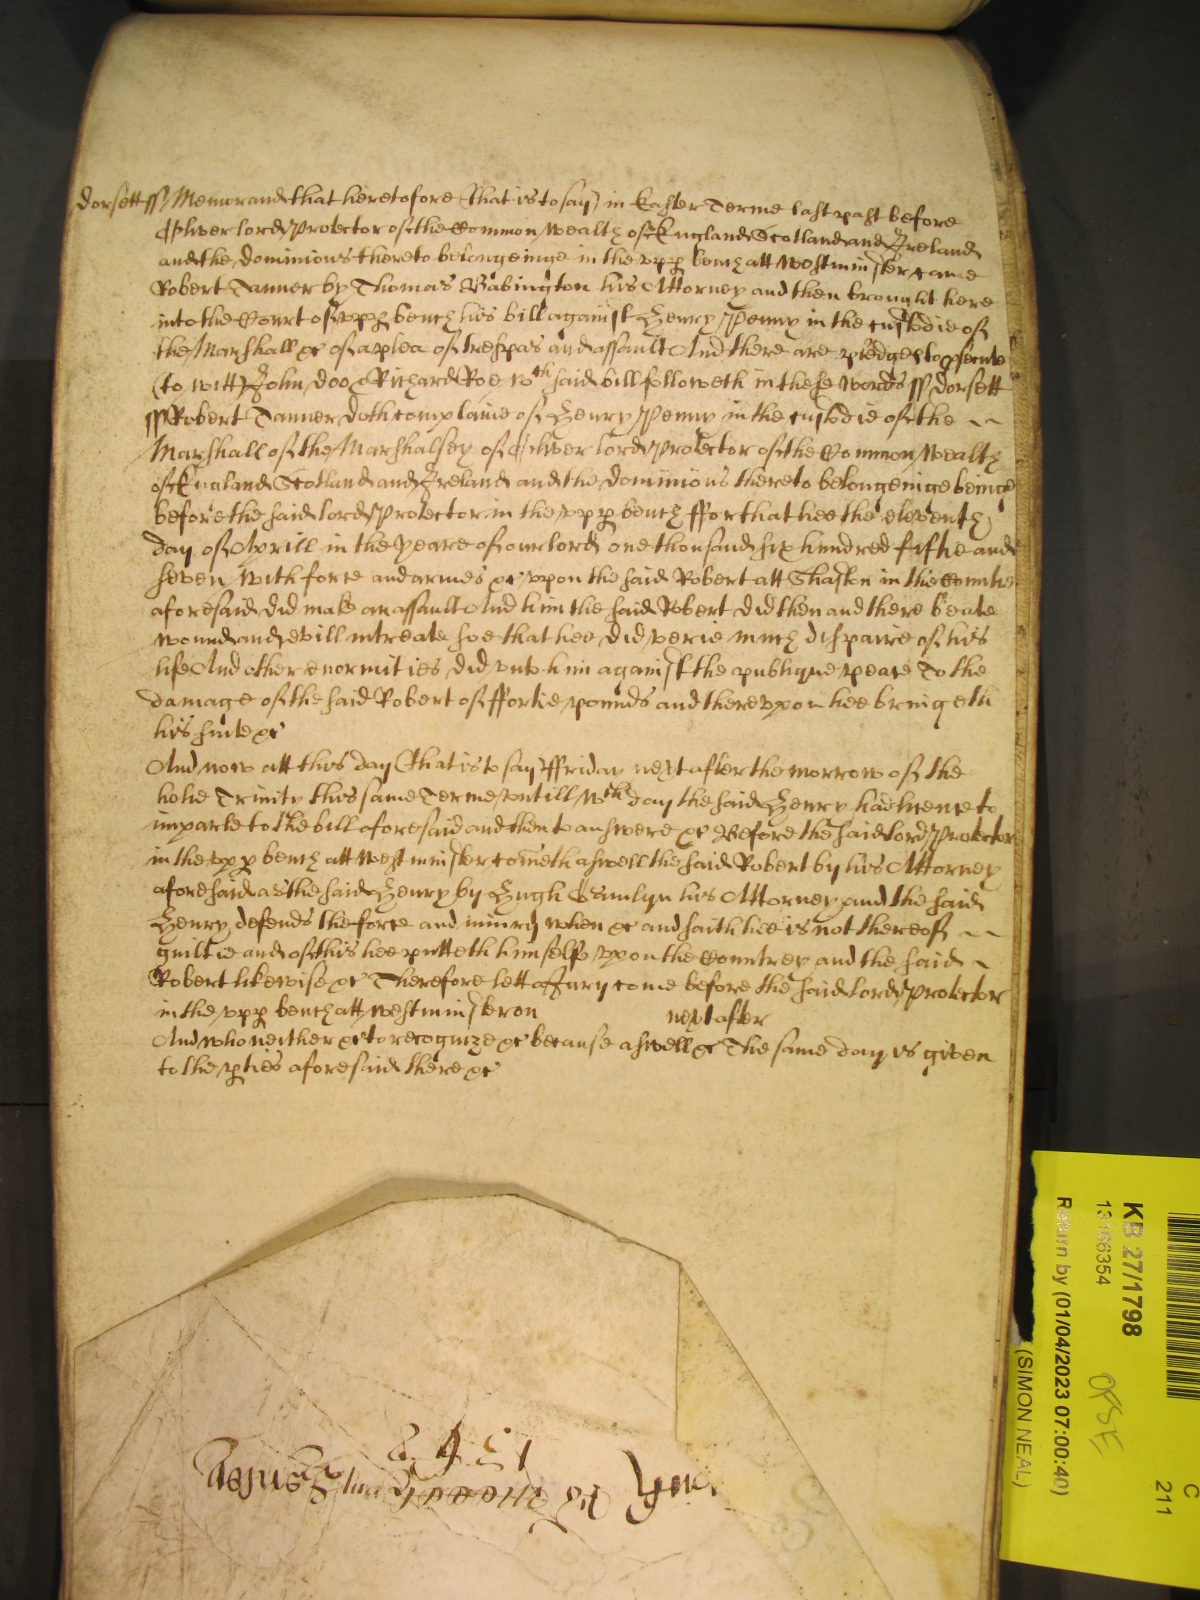 Dorsett ss Memorand that heretofore (that is to say) in Easter Terme last past before
Oliver lord Protector of the Common Wealth of England Scotland and Ireland
and the dominions thereto belongeinge in the upp bench att Westminster came
Robert Tanner by Thomas Babington his Attorney and then brought here
into the Court of upp bench his bill against Henry Penny in the custodie of
the Marshall &c of a plea of trespas and assault And there are pledges to psecute
(to witt) John Doo & Richard Roe wch said bill followeth in these words ss Dorsett
ss Robert Tanner doth complaine of Henry Penny in the custodie of the
Marshall of the Marshalsey of Oliver lord Protector of the Common Wealth
of England Scotland and Ireland and the dominions thereto belongeinge beinge
before the said lord Protector in the upp bench ffor that hee the eleventh
day of Aprill in the yeare of our lord one thousand six hundred fiftie and
seven with force and armes &c uppon the said Robert att Shaston in the County
aforesaid did make an assault And him the said Robert did then and there beate
wound and evill intreate soe that hee did verie much dispaire of his
life And other enormities did unto him against the publique peace To the
damage of the said Robert of ffortie pounds and thereuppon hee bringeth
his suite &c
And now att this day (that is to say) ffriday next after the morrow of the
holie Trinity this same Terme untill wch day the said Henry had licence to
imparle to the bill aforesaid and then to answere &c Before the said lord Protector
in the upp bench att Westminster cometh aswell the said Robert by his Attorney
aforesaid as the said Henry by Hugh Hamlyn his Attorney and the said
Henry defends the force and iniury when &c and saith hee is not thereof
guiltie and of this hee putteth himselfe uppon the Countrey and the said
Robert likewise &c Therefore lett a Jury come before the said lord Protector
in the upp bench att Westminster on next after
And who neither &c to recognize &c because aswell &c The same day is given
to the pties aforesaid there &c
KB 27/1798
13166354
Return by (01/04/2023 07:00:40)
(SIMON NEAL)
C
211